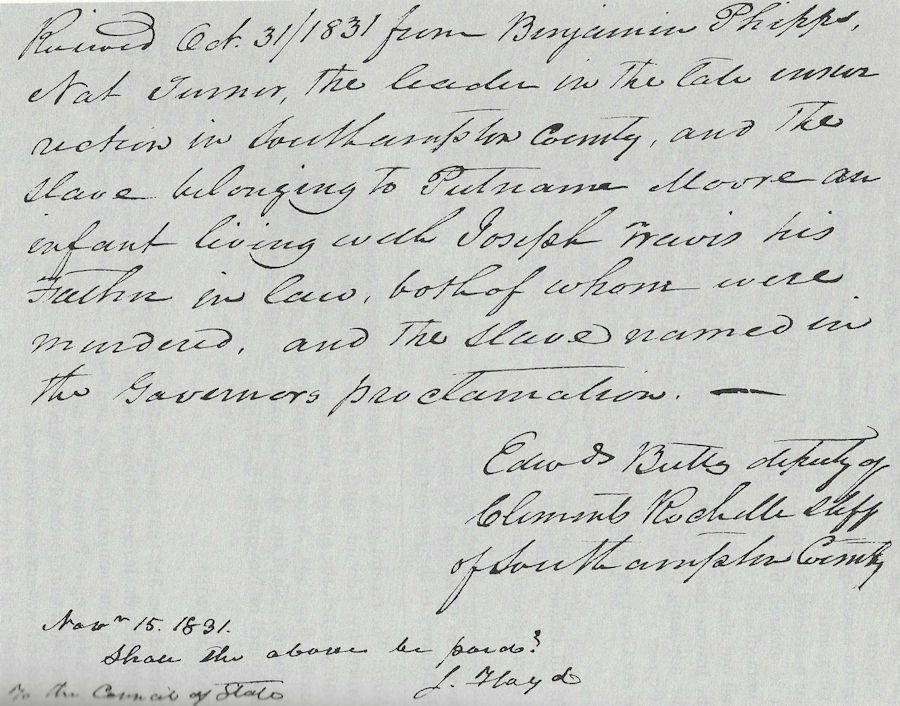 Received Oct. 31/1831 from Benjamin Phipps,
Nat Turner, the leader in the late insur
rection in Southampton County, and the
slave belonging to Putnam Moore an
infant living with Joseph Travis his
Father in law, both of whom were
murdered, and the slave named in
the Governors proclamation. —
Edwds Butts deputy of
Clements Rochelle Shff
of Southampton County
Novr 15. 1831.
Shall the above be paid?
J. Floyd
To the Council of State